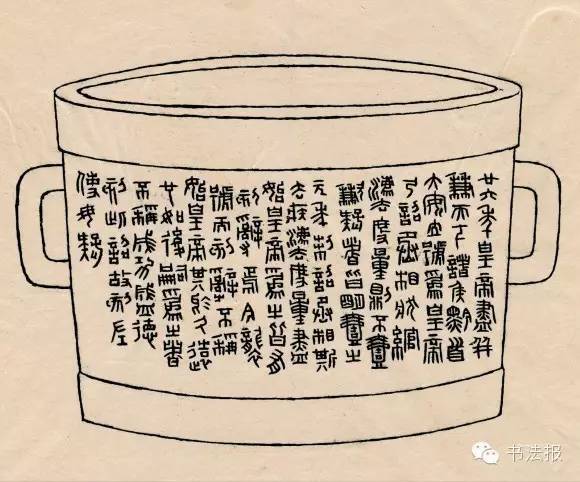 廿六年皇帝盡并
兼天下諸侯黔首
大安立號為皇帝
乃詔丞相狀綰
法度量則不壹
歉疑者皆明壹之
元年制詔丞相斯
去疾法度量盡
始皇帝為之皆有
刻辭焉今襲
號而刻辭不稱
始皇帝其於久遠
也如後嗣為之者
不稱成功盛德
刻此詔故刻左
使毋疑
书法报